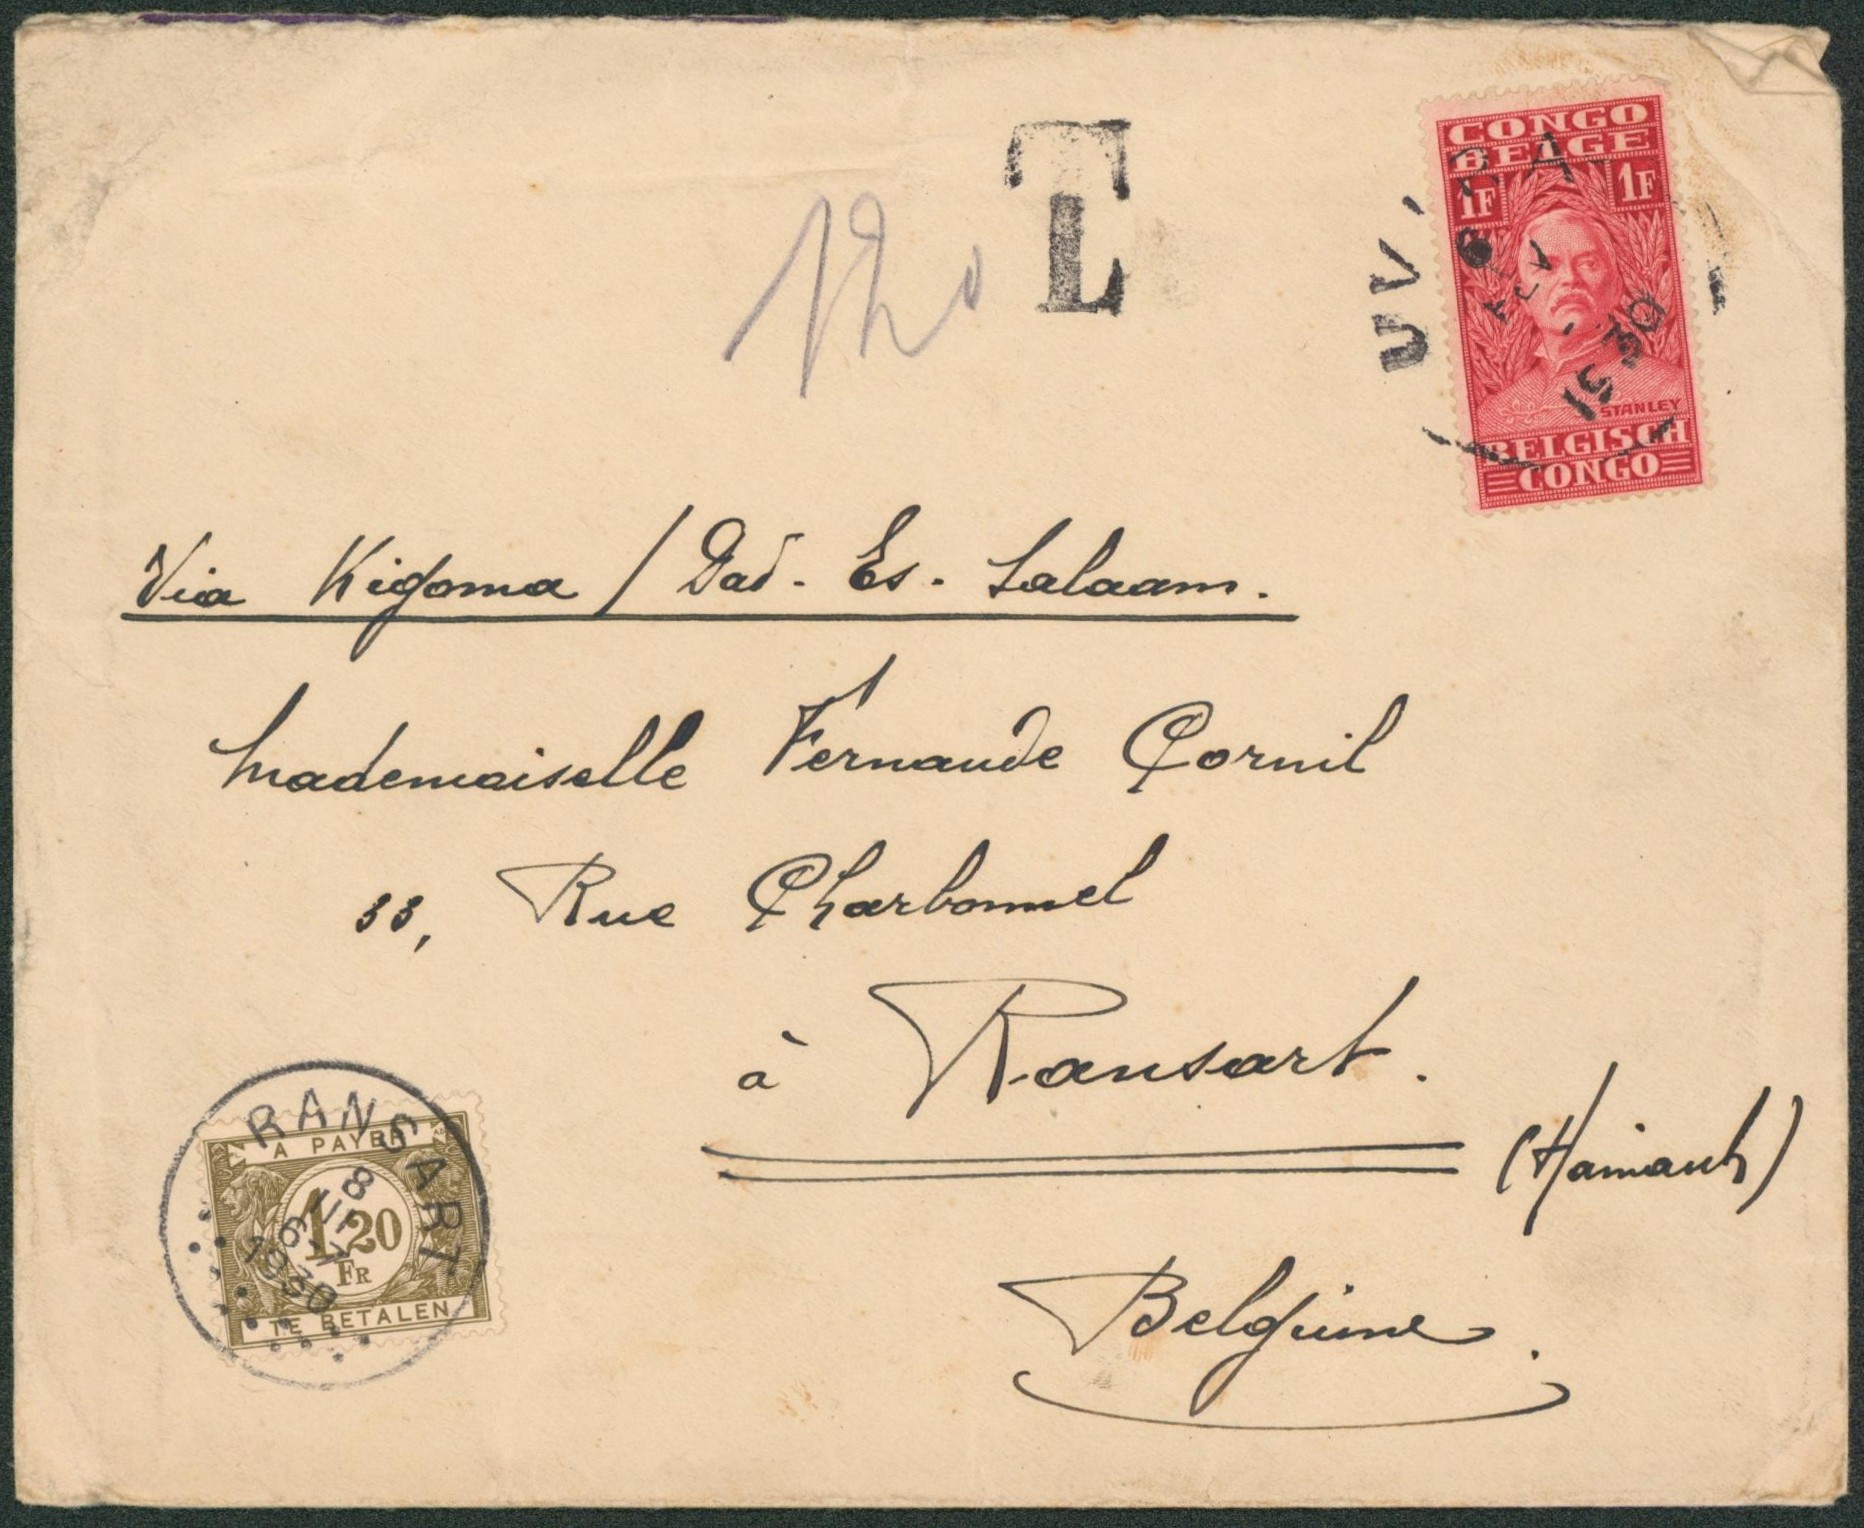 T
120
CONGO
BELGE
1F 1F
STANLEY
BELGISCH
CONGO
UVIRA
1930
Via Kigoma / Dar-Es-Salaam.
Mademoiselle Fernande Cornil
33, Rue Charbonnel
à Ransart.
(Hainaut)
Belgique.
RANSART
8
1930
A PAYER
1,20
FR
TE BETALEN